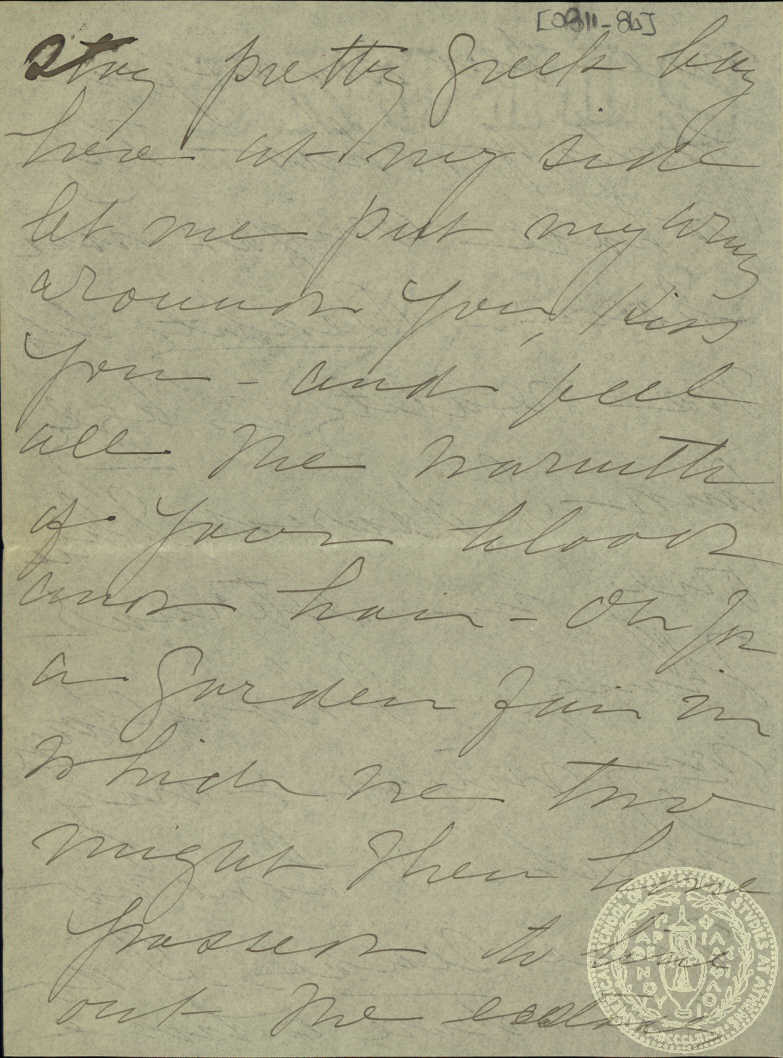 [0811-86]
Stay pretty Greek boy
here at my side
let me put my arms
around you, Kiss
you - and feel
all the warmth
of your blood
and hair - Oh for
a garden fair in
which we two
might then have
passed to
out the